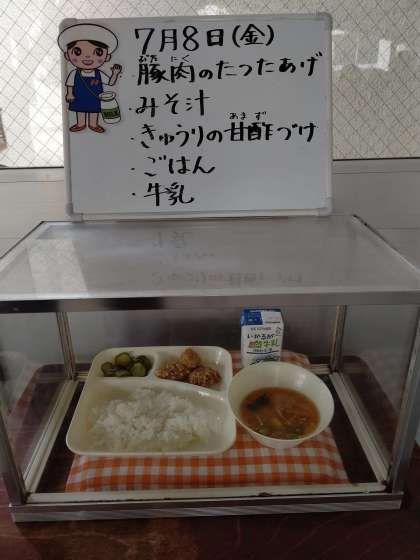 7月8日(金)
ぶた にく
・豚肉のたつたあげ
・みそ汁
あま ず
・きゅうりの甘酢づけ
・ごはん
・牛乳
いかるが
牛乳